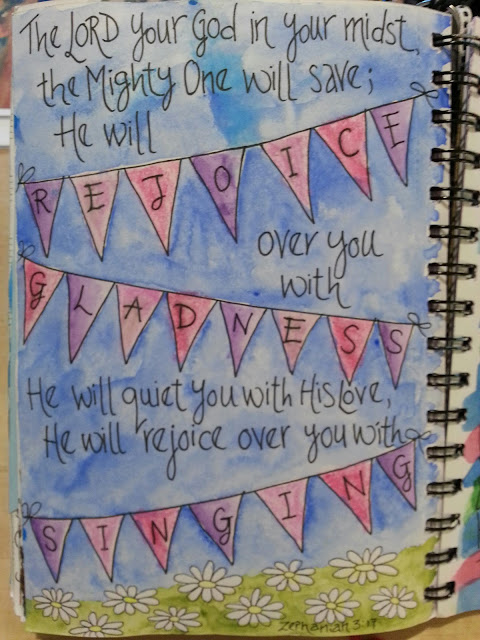 The LORD your God in your midst,
the Mighty One will save;
He will
REJOICE
over you
with
GLADNESS
He will quiet you with His Love,
He will rejoice over you with
SINGING
Zephaniah 3.17